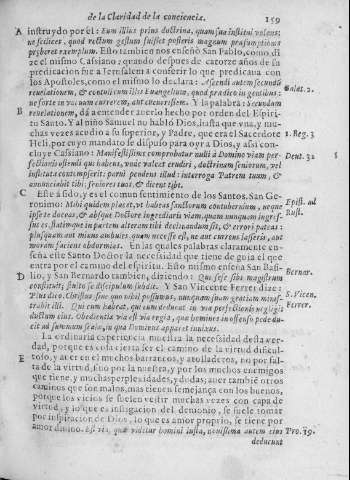 de la Claridad de la conciencia. 159
A instruydo por èl: Eum illius prius doctrina, quam sua institui volens;
ne scilicet, quod rectum gestum fuisset posteris magnum præsumptionis
præberet exemplum. Esto tambien nos enseñò San Pablo, como di-
ze el mismo Cassiano; quando despues de catorze años de su
predicacion fue a Ierusalem a conferir lo que predicaua con
los Apostoles, como el mismo lo declara: Ascendi autem secundũ
revelationem, & contuli cum illis Euangelium, quod prædico in gentibus:
Galat. 2.
ne forte in vacuum currerem, aut cucurrissem. Y la palabra: Secundum
B revelationem, dà a entender auerlo hecho por orden del Espiri-
tu Santo. Y al niño Samuel no hablò Dios, hasta que vna, y mu-
chas vezes acudio a su superior, y Padre, que era el Sacerdote
1. Reg. 3
Heli, por cuyo mandato se dispuso para oyr a Dios, y assi con-
cluye Cassiano: Manifestissimè comprobatur nulli à Domino viam per-
Deut. 32
fectionis ostendi qui habens, unde valeat erudiri, doctrinam seniorum, vel
instituta contempserit: parvi pendens illud: interroga Patrem tuum, &
annunciabit tibi: seniores tuos, & dicent tibi.
C Este à sido, y es el comun sentimiento de los Santos. San Ge-
ronimo: Mihi quidem placet, ut habeas sanctorum contubernium, neque
Epist. ad
Rust.
ipse te doceas, & absque Doctore ingrediaris viam, quam nunquam ingres-
sus es, statimque in partem alteram tibi declinandum sit, & errori pateas:
plusquam aut minus ambules, quam necesse est, ne aut currens lasseris, aut
moram faciens obdormias. En las quales palabras claramente en-
seña este Santo Doctor la necessidad que tiene de guia el que
entra por el camino del espiritu. Esto mismo enseña San Basi-
D lio, y San Bernardo tambien, diziendo: Qui se sibi magistrum
Bernar.
constituit, stulto se discipulum subdit. Y San Vincente Ferrer dize:
Plus dico, Christus sine quo nihil possumus, nunquam suam gratiam minis-
S. Vicen.
Ferrer.
trabit illi. Qui cum habeat, qui eum deducat in via perfectionis negligit
ductum eius. Obedientia via est via regia, quæ homines inoffenso pede du-
cit ad summum scalæ, in qua Dominus apparet innixus.
La ordinaria experiencia muestra la necessidad desta ver-
dad, porque es cosa cierta ser el camino de la virtud dificul-
E toso, y auer en el muchos barrancos, y atolladeros, no por fal-
ta de la virtud, sino por la nuestra, y por los muchos enemigos
que tiene, y muchas perplexidades, y dudas; auer tambiẽ otros
caminos que son malos, mas tienen semejança con los buenos,
porque los vicios se suelen vestir muchas vezes con capa de
virtud, y lo que es instigacion del demonio, se suele tomar
por inspiracion de Dios, lo que es amor proprio, se tiene por
amor divino. Est via, quæ videtur homini iusta, novissima autem eius
Pro. 19.
deducunt